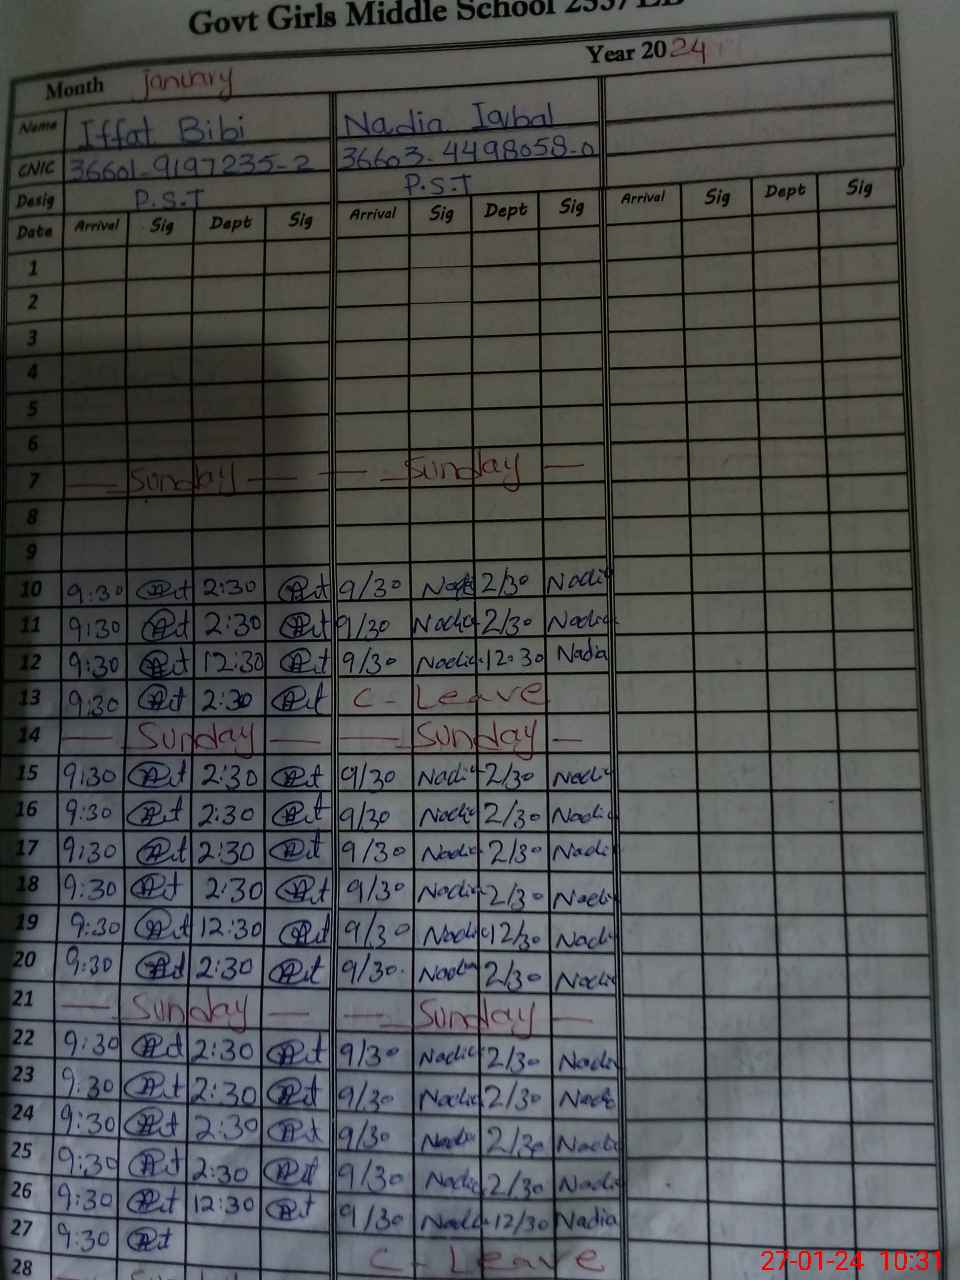 Govt Girls Middle School
Month January Year 2024
Name Iffat Bibi Nadia Iqbal
CNIC 36601-9197235-2 36603-4498058-0
Desig P.S.T P.S.T
Date Arrival Sig Dept Sig Arrival Sig Dept Sig Arrival Sig Dept Sig
1
2
3
4
5
6
7 Sunday Sunday
8
9
10 9:30 2:30 9/30 Nadia 2/30 Nadia
11 9:30 2:30 9/30 Nadia 2/30 Nadia
12 9:30 12:30 9/30 Nadia 12:30 Nadia
13 9:30 2:30 C-Leave
14 Sunday Sunday
15 9:30 2:30 9/30 Nadia 2/30 Nadia
16 9:30 2:30 9/30 Nadia 2/30 Nadia
17 9:30 2:30 9/30 Nadia 2/30 Nadia
18 9:30 2:30 9/30 Nadia 2/30 Nadia
19 9:30 12:30 9/30 Nadia 12/30 Nadia
20 9:30 2:30 9/30 Nadia 2/30 Nadia
21 Sunday Sunday
22 9:30 2:30 9/30 Nadia 2/30 Nadia
23 9:30 2:30 9/30 Nadia 2/30 Nadia
24 9:30 2:30 9/30 Nadia 2/30 Nadia
25 9:30 2:30 9/30 Nadia 2/30 Nadia
26 9:30 12:30 9/30 Nadia 12/30 Nadia
27 9:30 C-Leave
28
27-01-24 10:31